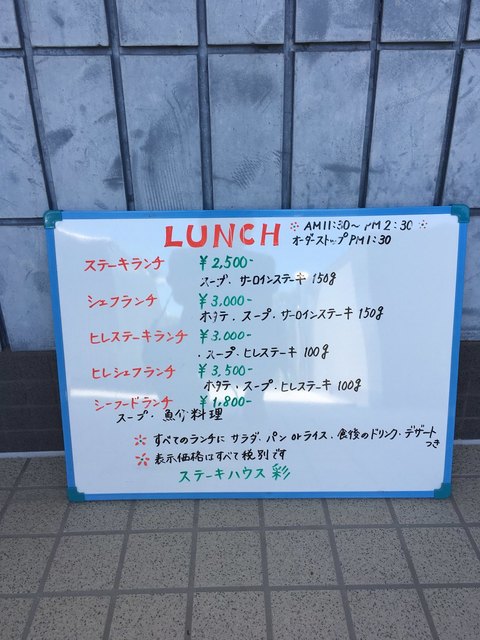 LUNCH ※ AM11:30〜PM2:30 ※
オーダーストップPM1:30
ステーキランチ ¥2,500-
スープ・サーロインステーキ 150g
シェフランチ ¥3,000-
ホタテ・スープ・サーロインステーキ 150g
ヒレステーキランチ ¥3,000-
・スープ・ヒレステーキ 100g
ヒレシェフランチ ¥3,500-
ホタテ・スープ・ヒレステーキ 100g
シーフードランチ ¥1,800-
スープ・魚介料理
※ すべてのランチに サラダ・パン orライス・食後のドリンク・デザート
つき
※ 表示価格はすべて税別です
ステーキハウス 彩